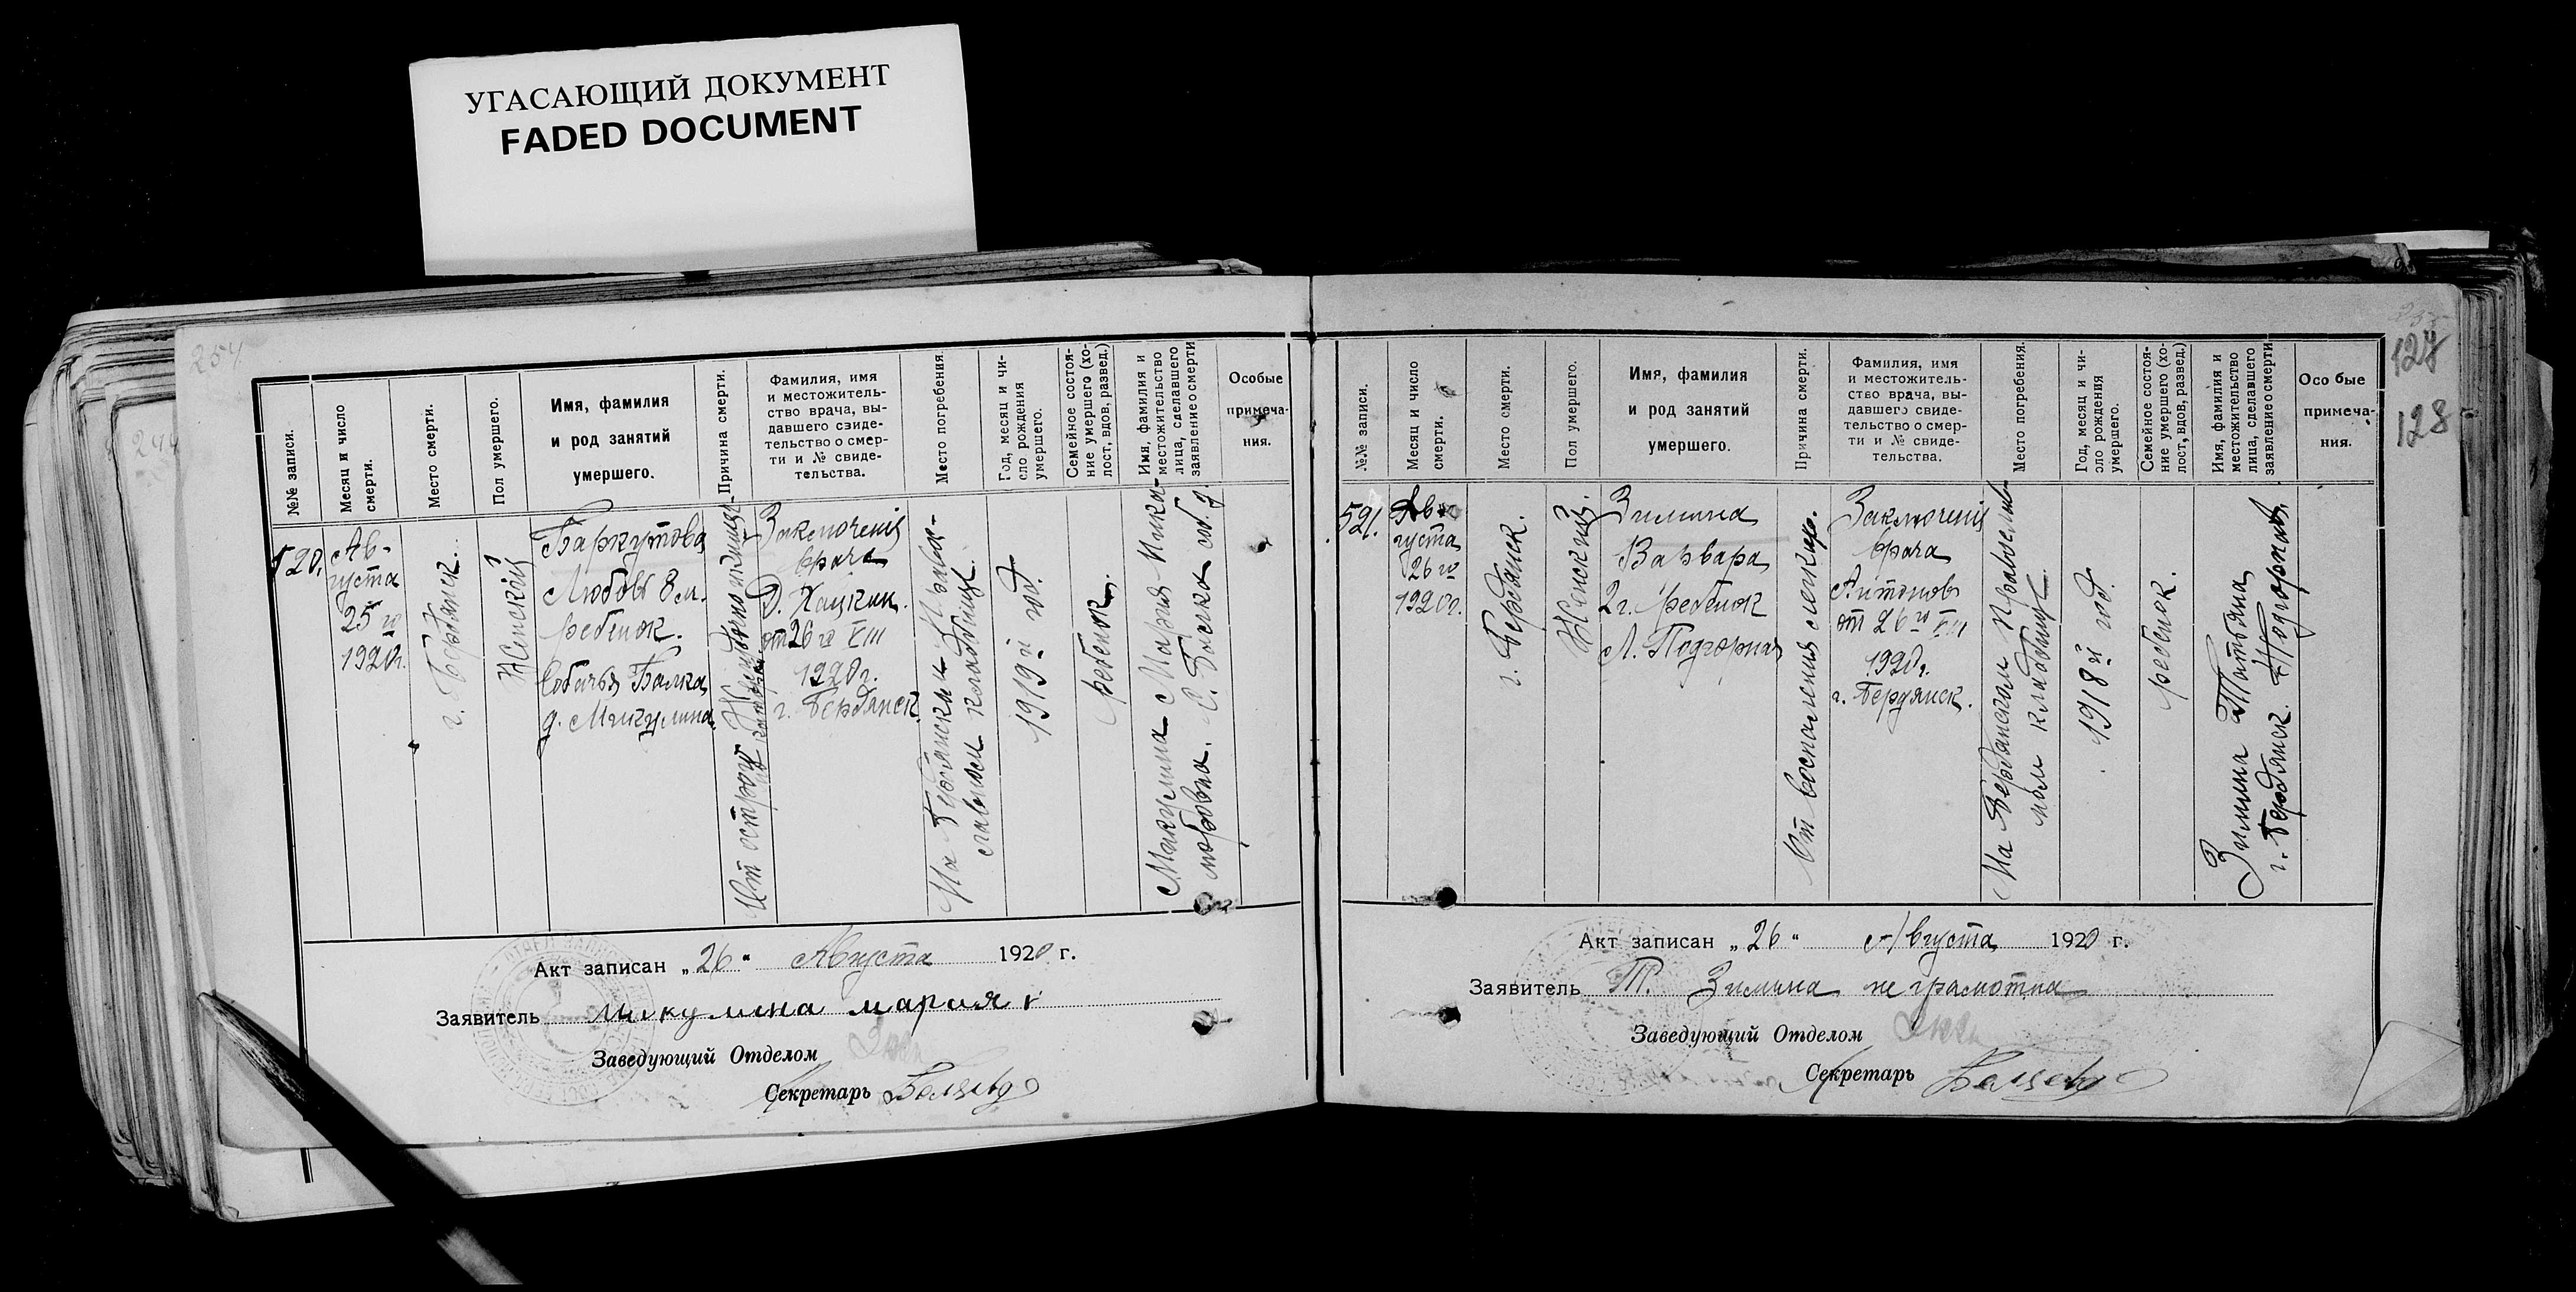 УГАСАЮЩИЙ ДОКУМЕНТ
FADED DOCUMENT
254
№№ записи.
Месяц и число
смерти.
Место смерти.
Пол умершего.
Имя, фамилия
и род занятий
умершего.
Причина смерти.
Фамилия, имя
и местожитель-
ство врача, вы-
давшего свиде-
тельство о смер-
ти и № свиде-
тельства.
Место погребения.
Год, месяц и чи-
сло рождения
умершего.
Семейное состоя-
ние умершего (хо-
лост, вдов, развед.)
Имя, фамилия и
местожительство
лица, сделавшего
заявление о смерти
Особые
примеча-
ния.
520.
Ав-
густа
25 го
1920г.
г. Бердянск.
Женский
Баркутова
Любовь 8 м.
ребенок.
Собачья Балка
д. Микулина
От острого
Заключения
врача
Д. Хацкин.
от 26 го VIII
1920г.
г. Бердянск
На Бердянском Право-
славном кладбище.
1919 й год.
ребенок.
Микулина Мария Ника-
норовна. С. Балка соб. д.
Акт записан „26“ Августа 1920 г.
Заявитель микулина мария
Заведующий Отделом
Секретарь
127
128
№№ записи.
Месяц и число
смерти.
Место смерти.
Пол умершего.
Имя, фамилия
и род занятий
умершего.
Причина смерти.
Фамилия, имя
и местожитель-
ство врача, вы-
давшего свиде-
тельство о смер-
ти и № свиде-
тельства.
Место погребения.
Год, месяц и чи-
сло рождения
умершего.
Семейное состоя-
ние умершего (хо-
лост, вдов, развед.)
Имя, фамилия и
местожительство
лица, сделавшего
заявление о смерти
Особые
примеча-
ния.
521.
Ав-
густа
26 го
1920г.
г. Бердянск.
Женский.
Зимина
Варвара
2 г. ребенок
Л. Подгорная
От воспаления легких.
Заключения
врача
Антонов
от 26 го VIII
1920г.
г. Бердянск.
На Бердянском Православ-
ном кладбище.
1918 й год.
ребенок.
Зимина Татьяна
г. Бердянск. Подгорная
Акт записан „26“ Августа 1920 г.
Заявитель Т. Зимина неграмотна
Заведующий Отделом
Секретарь